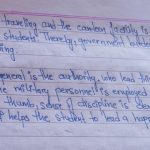 traveling and the canteen facility is
students. Thereby, government
ing.
General is the authority, who lead
military personnel is employed
thumb, sense of discipline is
helps the student to lead a happy